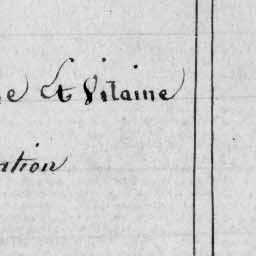 e Et Vilaine
ation